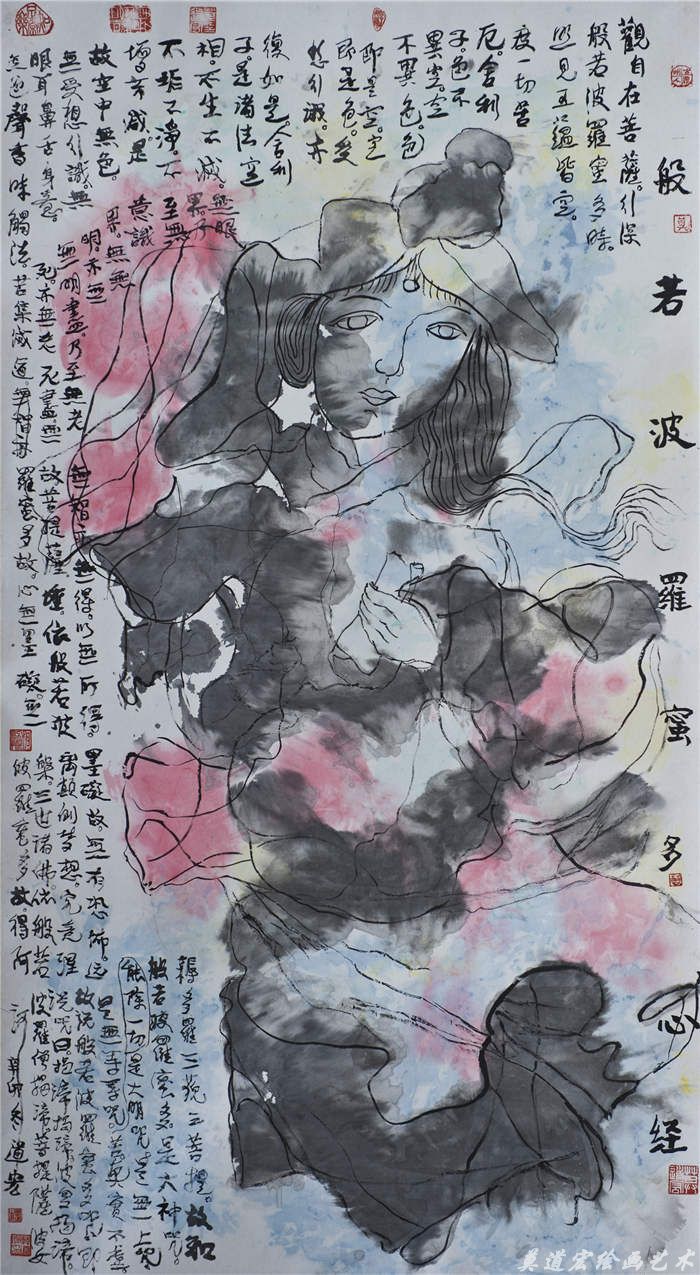 般若波羅蜜多心经
觀自在菩薩。行深
般若波羅蜜多時。
照見五蘊皆空。
度一切苦
厄。舍利
子。色不
異空。空
不異色。色
即是空。空
即是色。受
想行識。亦
復如是舍利
子是諸法空
相。不生不滅。
不垢不淨不
增不減。是
故空中無色。
無受想行識。無
眼耳鼻舌身意。
無色聲香味觸法。
無眼
界。乃
至無
意識
界。無無
明。亦無
無明盡。乃至無老
死。亦無老死盡無
苦集滅道。
無智亦無得。以無所得
故菩提薩埵依般若波
羅蜜多故。心無罣礙。無
罣礙故。無有恐怖。遠
離顛倒夢想。究竟涅
槃。三世諸佛。依般若
波羅蜜多故得阿
耨多羅三藐三菩提。故知
般若波羅蜜多是大神咒。
能除一切是大明咒是無上咒
是無等等咒。苦真實不虛
故說般若波羅蜜多咒即
說咒曰。揭諦揭諦波羅揭諦。
波羅僧揭諦菩提薩婆
訶 辛卯冬道宏
莫道宏绘画艺术